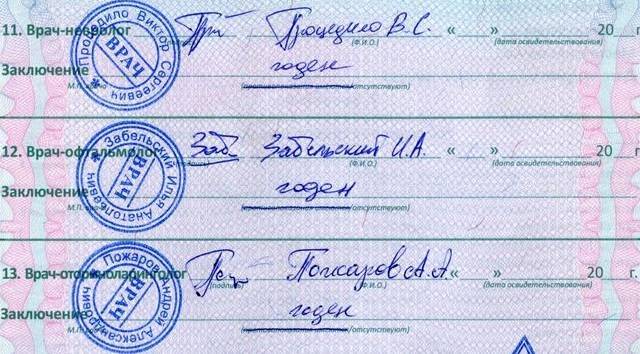 11. Врач-невролог Процидило В.С. «__» 20__ г.
(Ф.И.О.) (дата освидетельствования)
Заключение годен
/отсутствуют)
Процидило Виктор Сергеевич * ВРАЧ
12. Врач-офтальмолог Заб Забельский И.А. «__» 20
(Ф.И.О.) (дата освидетельствования)
Заключение годен
/отсутствуют)
Забельский Илья Анатольевич * ВРАЧ
13. Врач-оториноларинголог Пожаров А.А. «__» 20__ г.
(подпись) (Ф.И.О.) (дата освидетельствования)
Заключение годен
/отсутствуют)
Пожаров Андрей Александрович * ВРАЧ